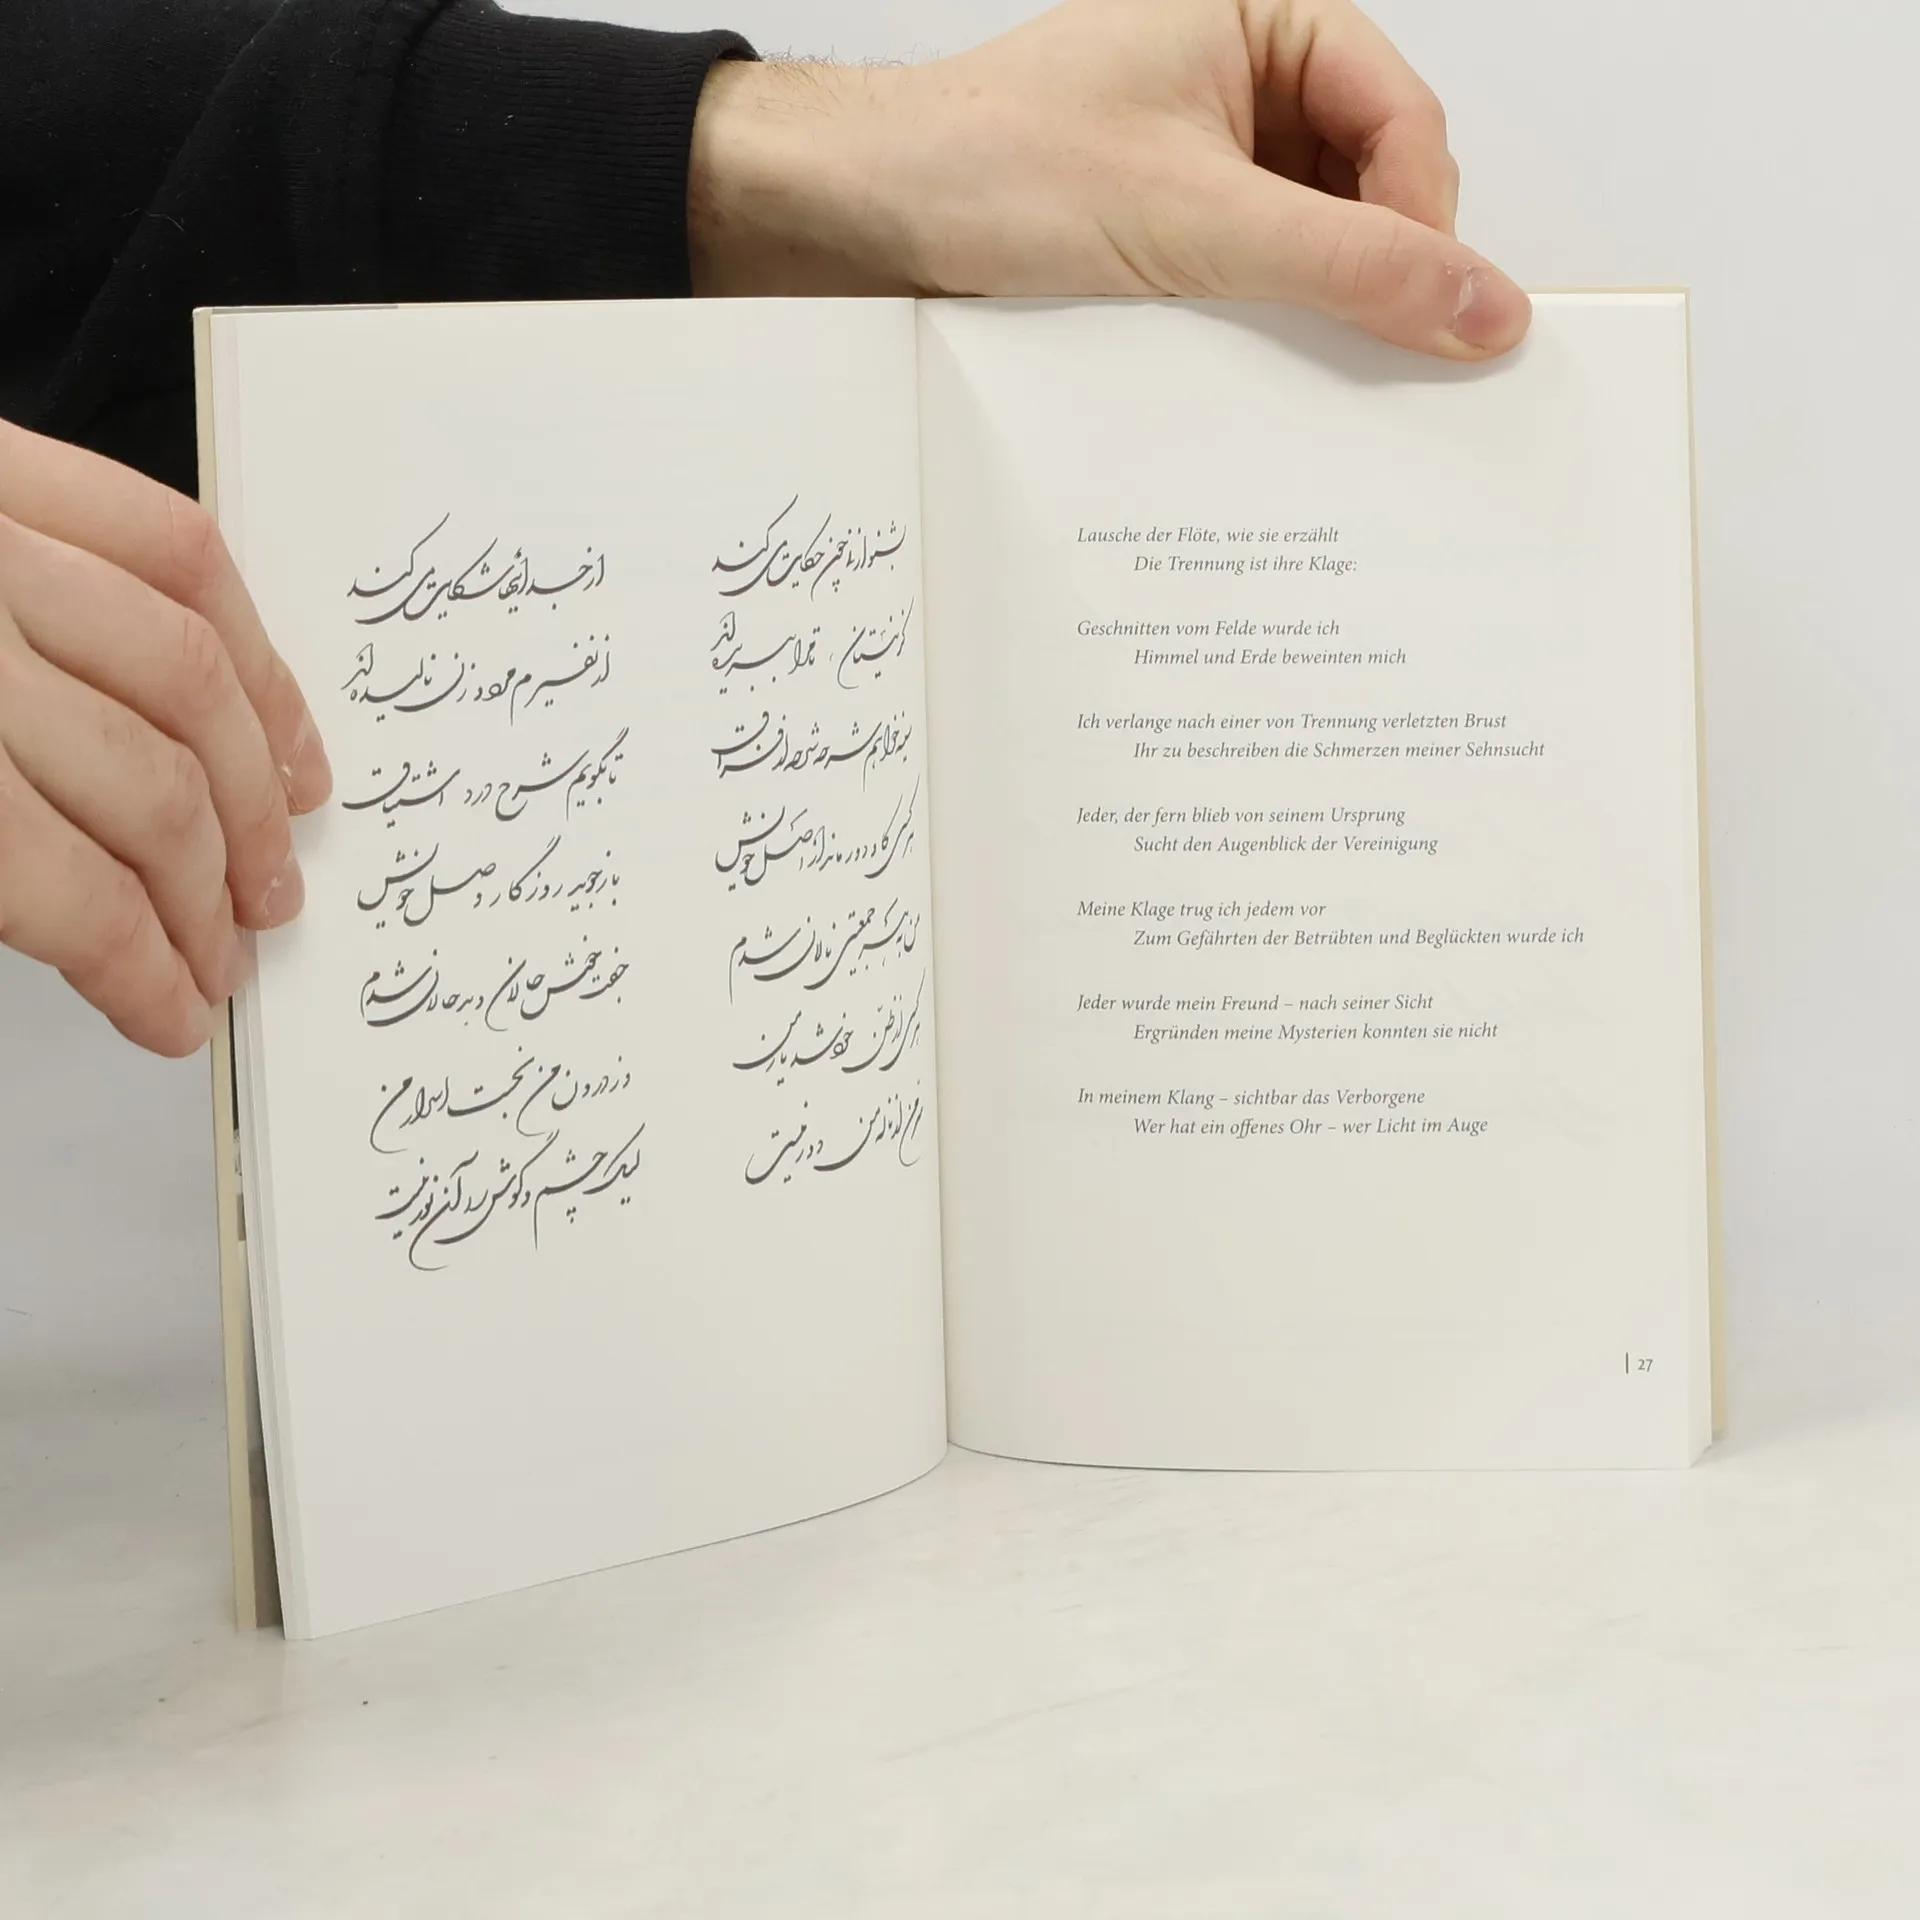 بشنو از نی چون حکایت می کند از جدائیها شکایت می کند
کز نیستان تا مرا ببریده اند از نفیرم مرد و زن نالیده اند
سینه خواهم شرحه شرحه از فراق تا بگویم شرح درد اشتیاق
هر کسی کاو دور ماند از اصل خویش باز جوید روزگار وصل خویش
من به هر جمعیتی نالان شدم جفت خوش حالان و بد حالان شدم
هر کسی از ظنّ خود شد یار من وز درون من نجست اسرار من
سر من از ناله من دور نیست لیک چشم و گوش را آن نور نیست
Lausche der Flöte, wie sie erzählt
Die Trennung ist ihre Klage:
Geschnitten vom Felde wurde ich
Himmel und Erde beweinten mich
Ich verlange nach einer von Trennung verletzten Brust
Ihr zu beschreiben die Schmerzen meiner Sehnsucht
Jeder, der fern blieb von seinem Ursprung
Sucht den Augenblick der Vereinigung
Meine Klage trug ich jedem vor
Zum Gefährten der Betrübten und Beglückten wurde ich
Jeder wurde mein Freund – nach seiner Sicht
Ergründen meine Mysterien konnten sie nicht
In meinem Klang – sichtbar das Verborgene
Wer hat ein offenes Ohr – wer Licht im Auge
| 27